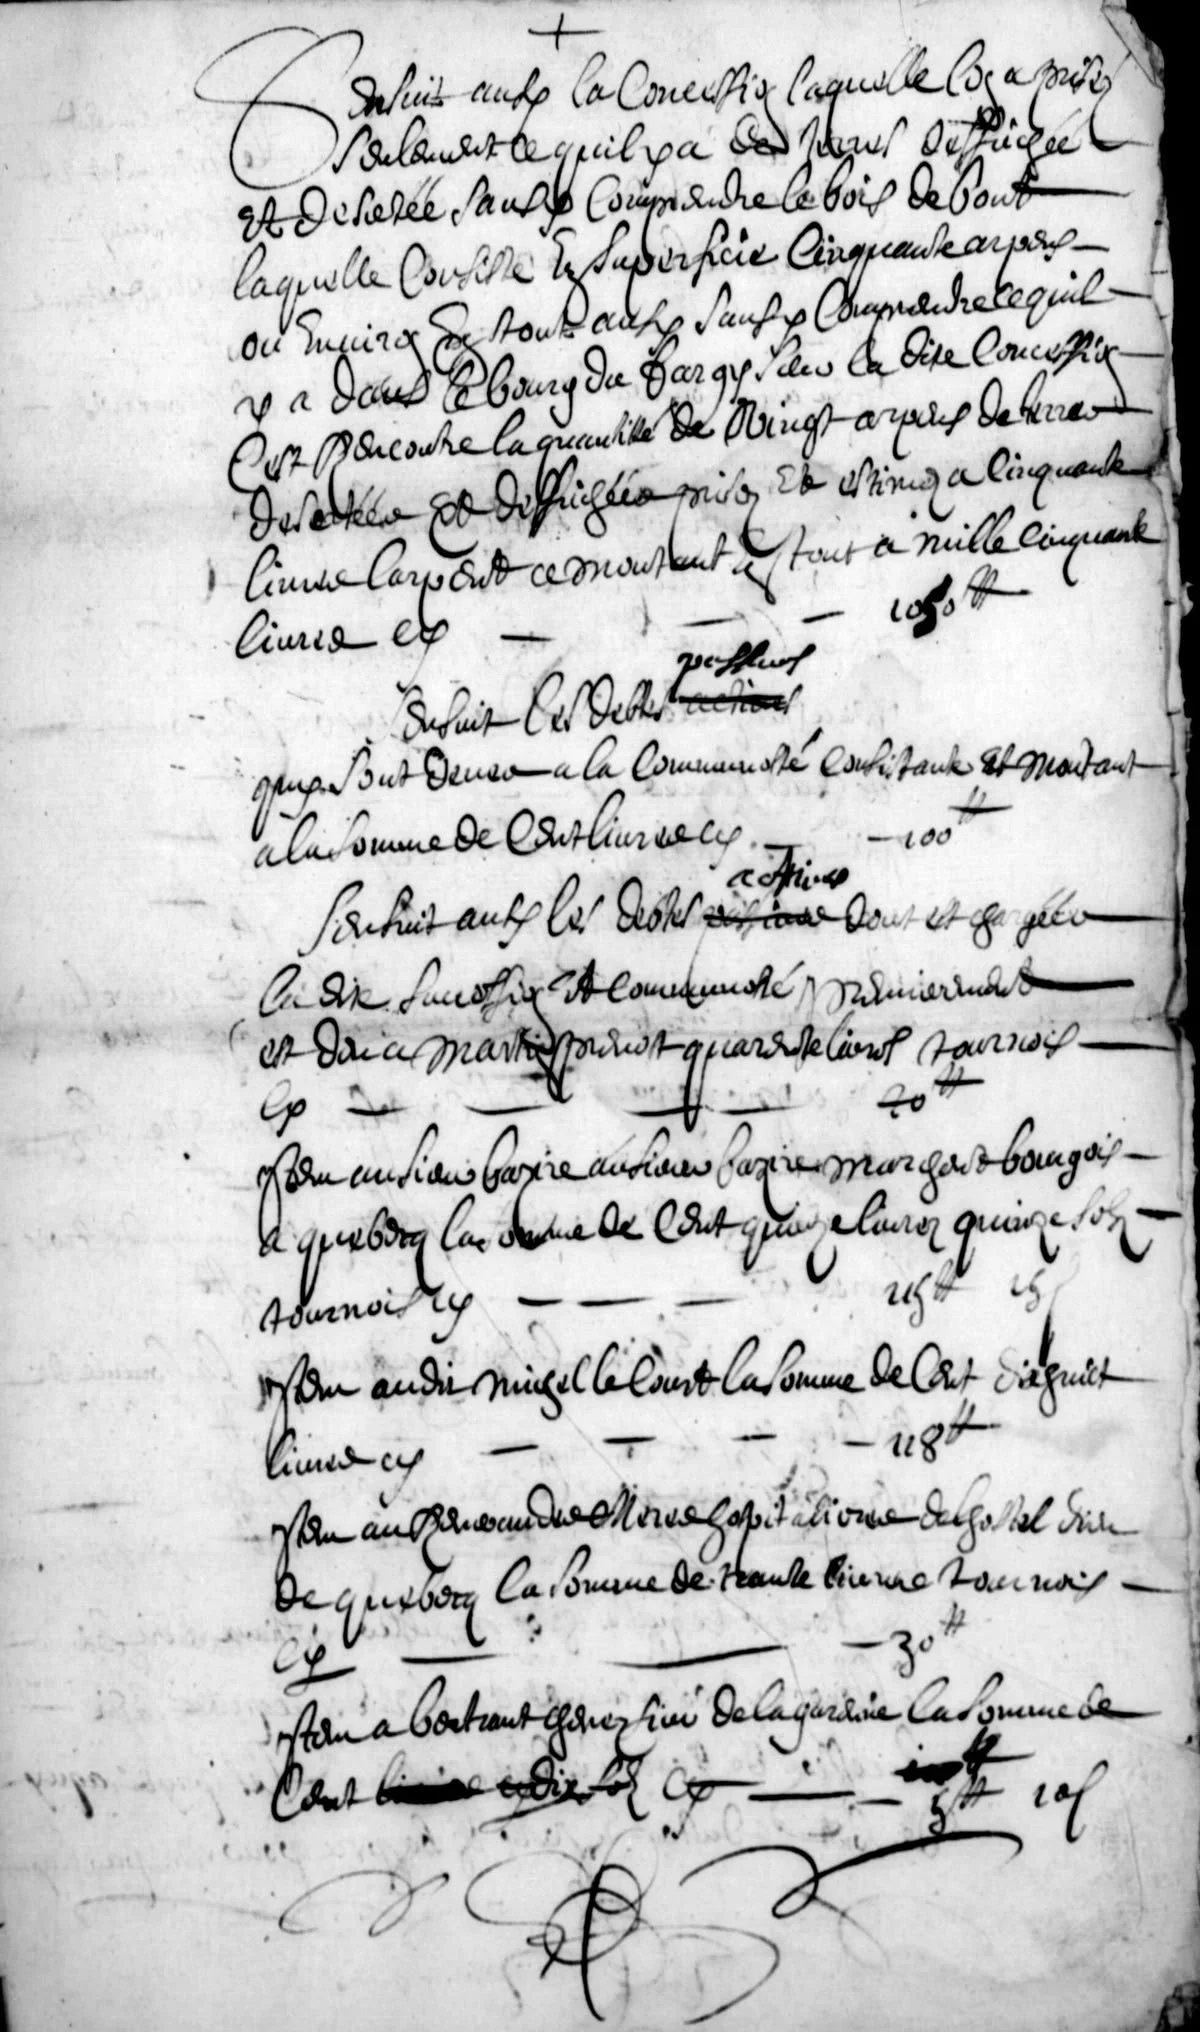 +
Ensuit aussy la Concession laquelle lon a prisez
seulement ce quil y a de terres deffrichée
et desertée sans y Comprendre le bois debout
laquelle Consiste En superficie Cinquante arpens
ou Environ En tout aussy sans y Comprendre ce quil
y a dans le bourg du fargy sur la dite Concession
Cest Rencontre la quantitté de Vingt arpens de terres
desertées Et deffrichées prisez Et estimez a Cinquante
livres larpent ce montant en tout a mille cinquante
livres cy — — — 1050 ₶
passives
Ensuit les debtes actives
quy sont deues a la Communoté Consistante et montant
a la somme de Cent livres cy — — 100 ₶
actives
Sensuit aussy les debtes passives dont est chargées
la dite sucession Et Communoté premierement
est deu a martin prevost quarente livres tournois
Cy — — — — 40 ₶
Item au sieur bazire au sieur bazire marchant bourgois
a quebecq la somme de Cent quinze livrez quinze solz
tournois cy — — — 115 ₶ 15 s
Item audit michel le Court la somme de Cent dix huict
livres cy — — — — 118 ₶
Item au Reverandes Meres hospitalieres de lhostel dieu
de quebecq la somme de trante livres tournois
Cy — — — 30 ₶
Item a bertrant chenez sieur de la garenne la somme de
Cent livres cy dix solz cy — — 5 ₶ 10 s